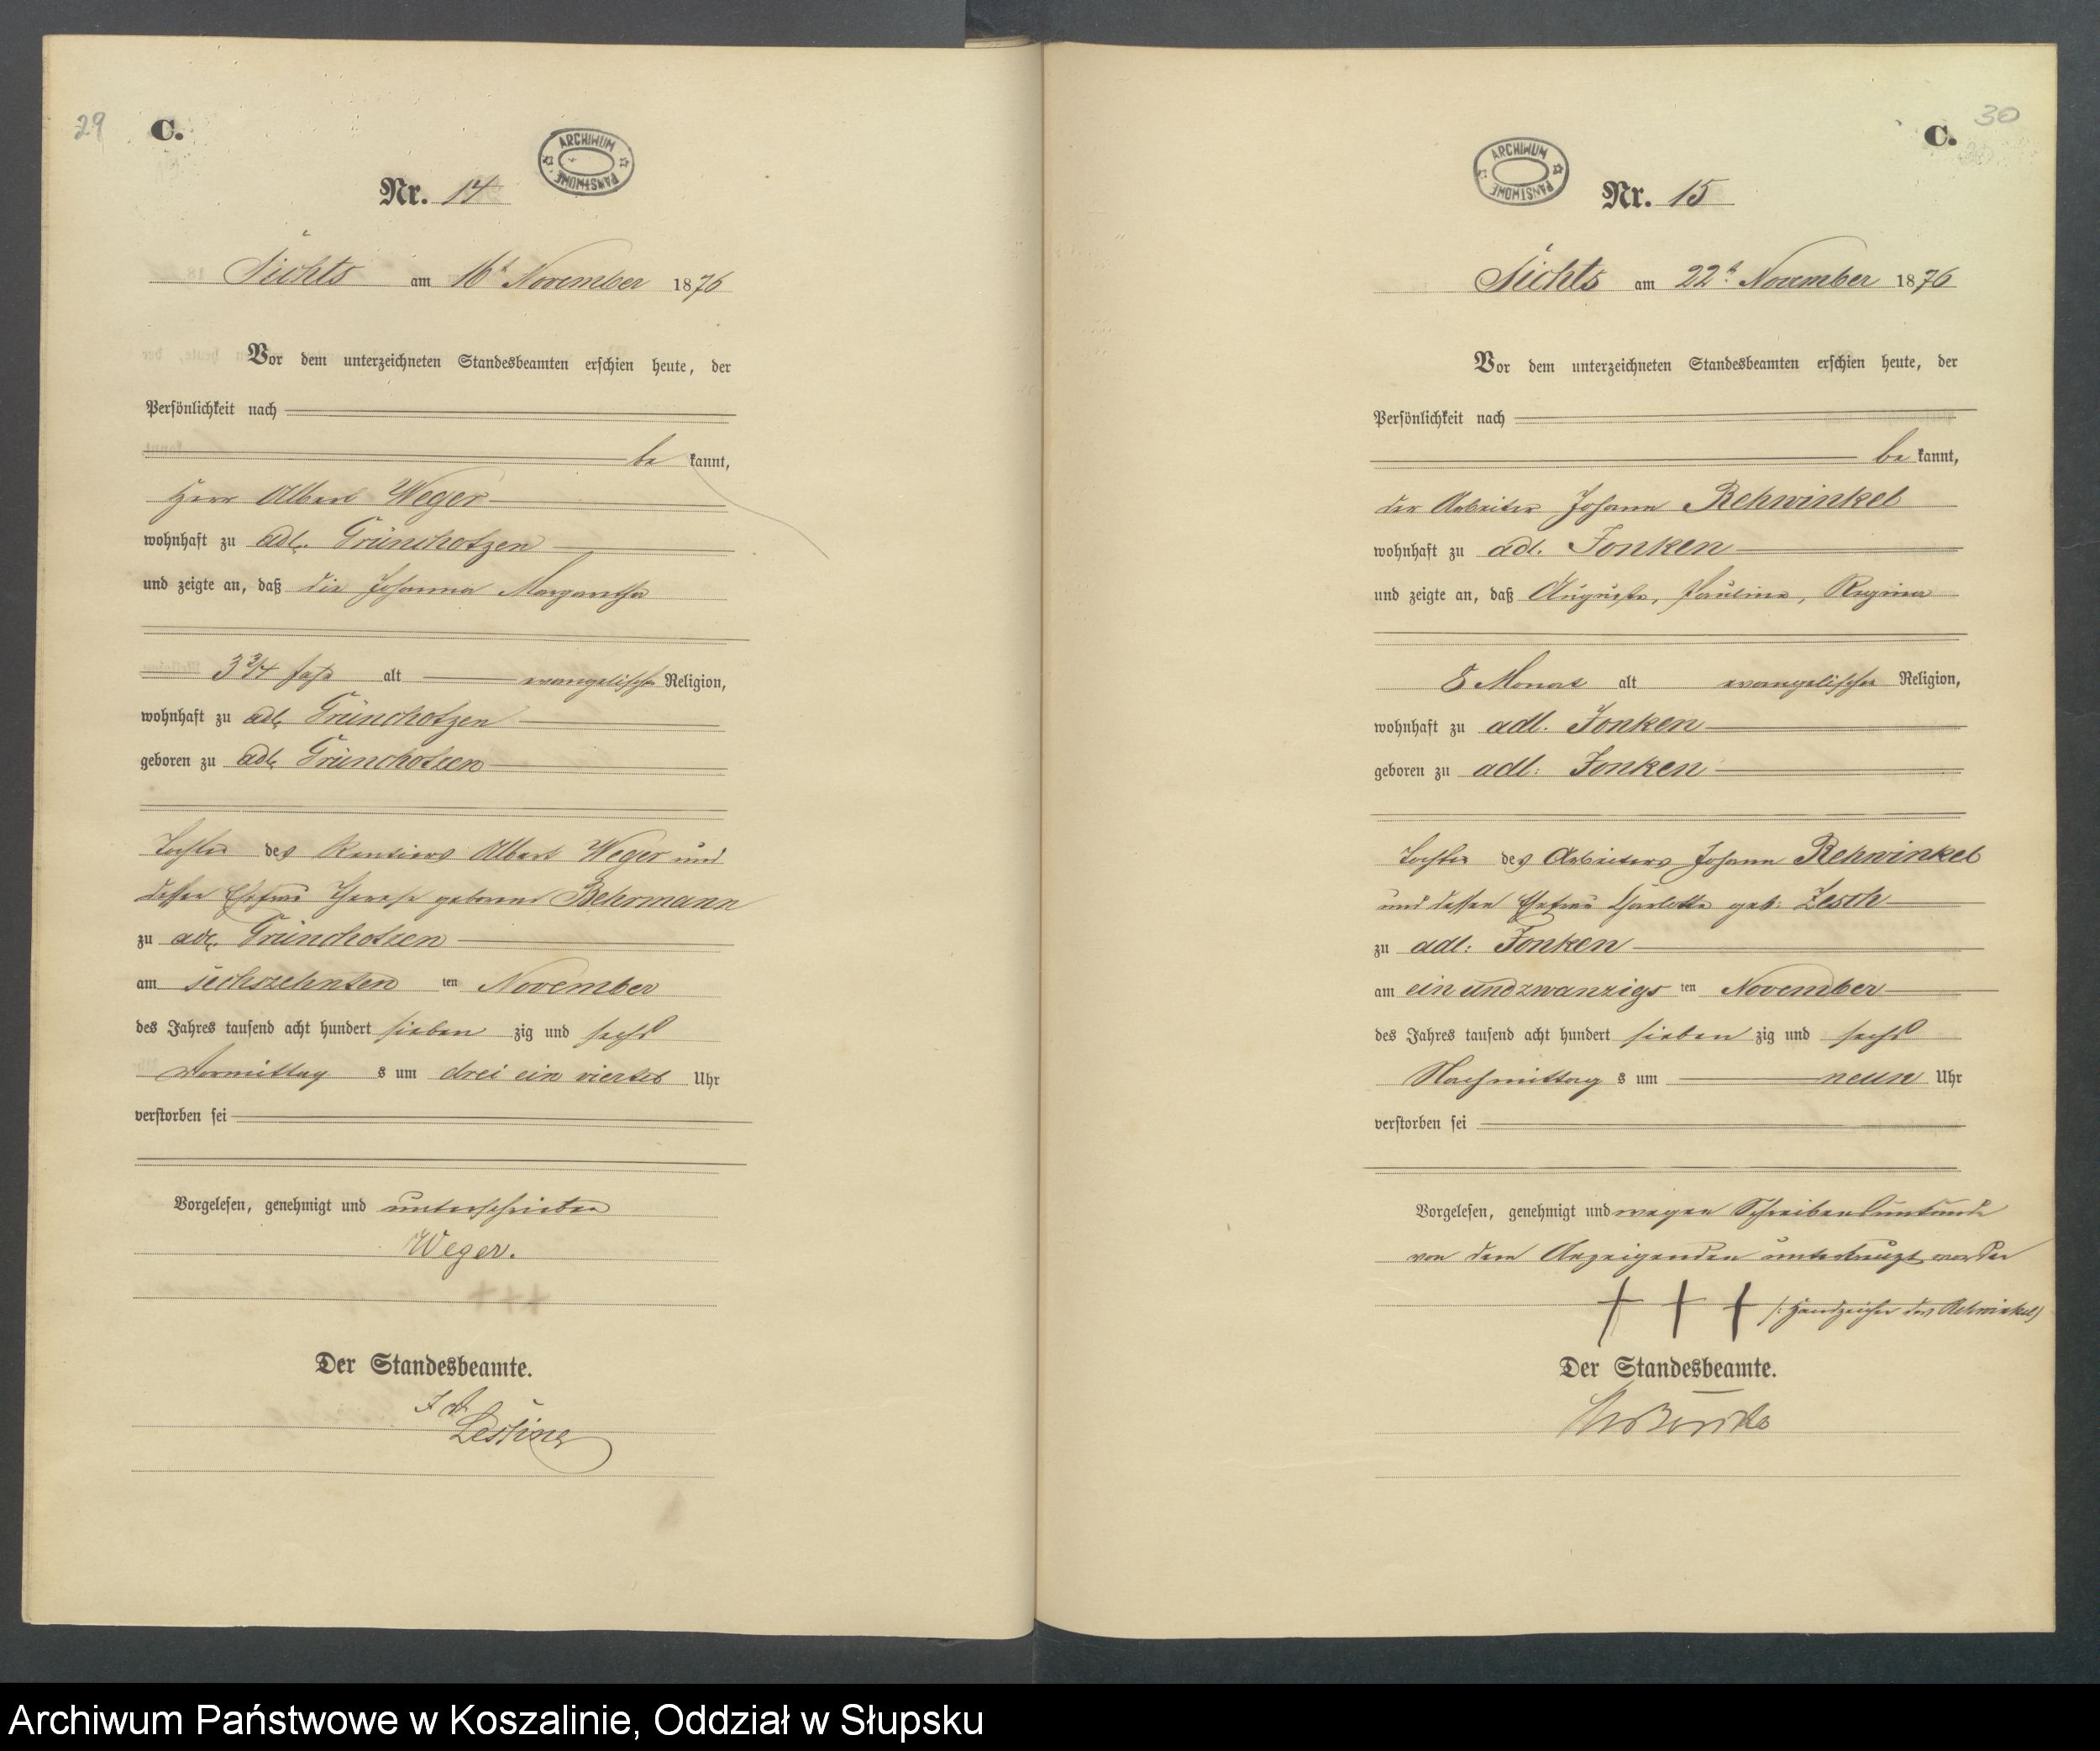 29
C.
ARCHIWUM PAŃSTWOWE
Nr. 14
Sichts am 16t November 1876
Vor dem unterzeichneten Standesbeamten erschien heute, der
Persönlichkeit nach
be kannt,
Herr Albert Weger
wohnhaft zu adl. Grünchotzen
und zeigte an, daß die Johanna Margaretha
3 3/4 Jahr alt evangelischer Religion,
wohnhaft zu adl. Grünchotzen
geboren zu adl. Grünchotzen
Tochter des Rentiers Albert Weger und
dessen Ehefrau Therese geborene Behrmann
zu adl. Grünchotzen
am sechszehnten ten November
des Jahres tausend acht hundert sieben zig und sechs
Vormittag s um drei ein viertel Uhr
verstorben sei
Vorgelesen, genehmigt und unterschrieben
Weger.
Der Standesbeamte.
30
C.
ARCHIWUM PAŃSTWOWE
Nr. 15
Sichts am 22t November 1876
Vor dem unterzeichneten Standesbeamten erschien heute, der
Persönlichkeit nach
be kannt,
der Arbeiter Johann Rehwinkel
wohnhaft zu ad. Fonken
und zeigte an, daß Auguste, Pauline, Regina
8 Monat alt evangelischer Religion,
wohnhaft zu adl. Fonken
geboren zu adl: Fonken
Tochter des Arbeiters Johann Rehwinkel
und dessen Ehefrau Charlotte geb: Zesch
zu adl: Fonken
am ein und zwanzigs ten November
des Jahres tausend acht hundert sieben zig und sechs
Nachmittag s um neun Uhr
verstorben sei
Vorgelesen, genehmigt und wegen Schreibensunkunde
von dem Anzeigenden unterkreuzt worden
+ + + /: Handzeichen des Rehwinkel/
Der Standesbeamte.
Archiwum Państwowe w Koszalinie, Oddział w Słupsku